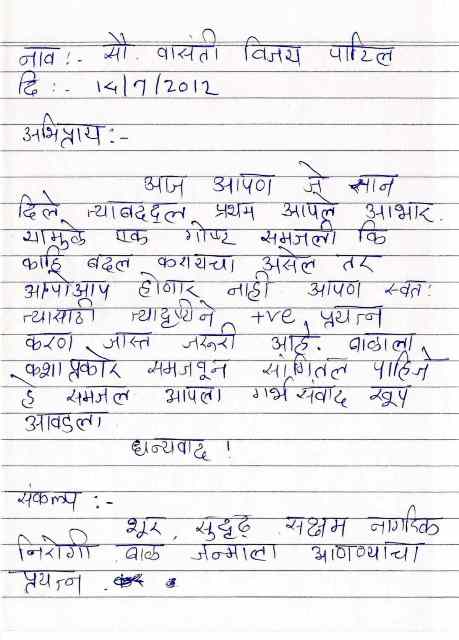 नाव :- सौ. वासंती विजय पाटिल
दि :- 14/7/2012
अभिप्राय :-
आज आपण जे ज्ञान
दिले त्याबद्दल प्रथम आपले आभार.
यामुळे एक गोष्ट समजली कि
काहि बदल करायचा असेल तर
आपोआप होणार नाही आपण स्वतः
त्यासाठी त्यादृष्टीने +ve प्रयत्न
करण जास्त जरूरी आहे. बाळाला
कशा प्रकारे समजवून सांगितल पाहिजे
हे समजल आपला गर्भसंवाद खूप
आवडला.
धन्यवाद !
संकल्प :-
शूर, सुदृढ, सक्षम नागरिक
निरोगी बाळ जन्माला आणण्याचा
प्रयत्न